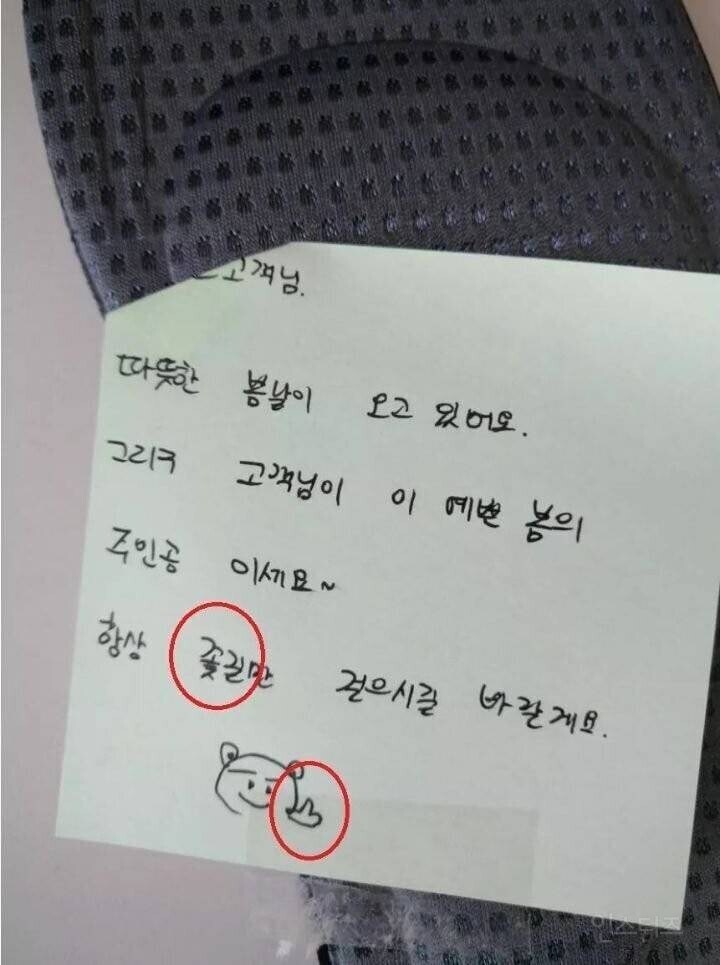 고객님.
따뜻한 봄날이 오고 있어요.
그리구 고객님이 이 예쁜 봄의
주인공 이세요~
항상 좆길만 걸으시길 바랄게요.
인스티즈